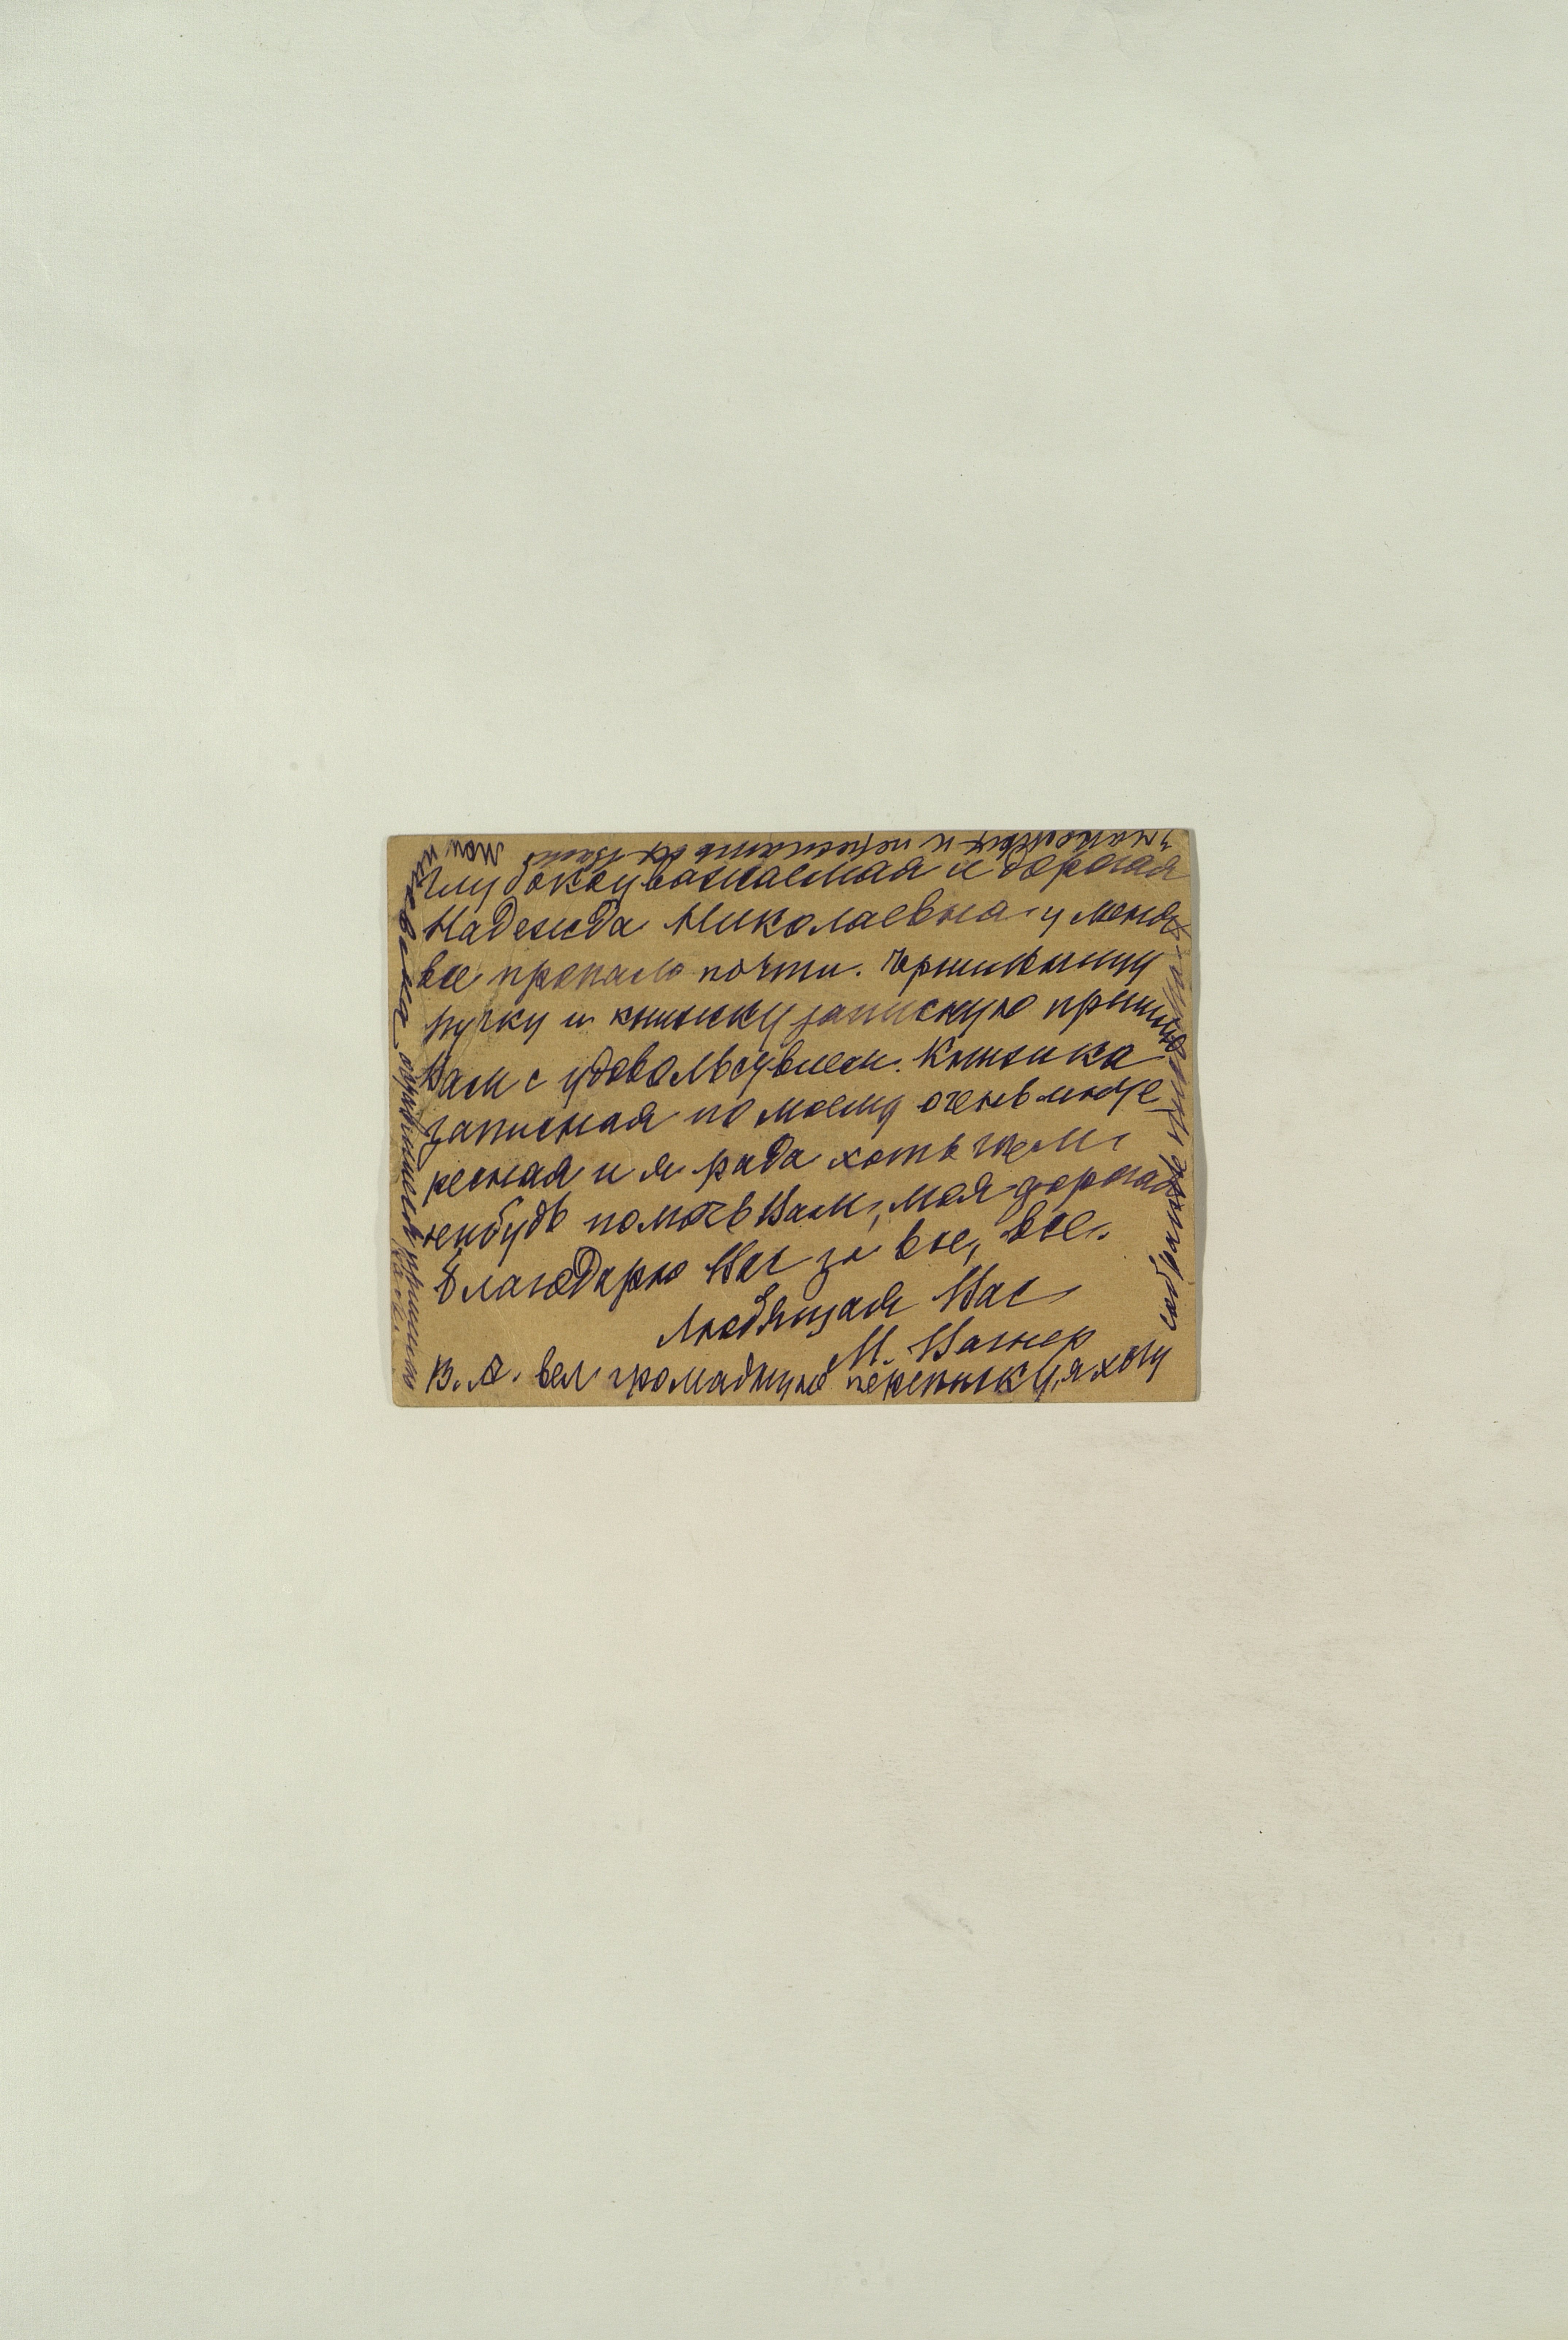 Глубокоуважаемая и дорогая
Надежда Николаевна у меня
все пропало почти. Чернильницу
ручку и книжку записную пришлю
Вам с удовольствием. Книжка
записная по моему очень инте
ресная и я рада хоть чем
нибудь помочь Вам, моя дорогая
Благодарю Вас за все, все.
Любящая Вас
М. Вагнер
В. А. вел громадную переписку, я хочу
собрать
и переписать их